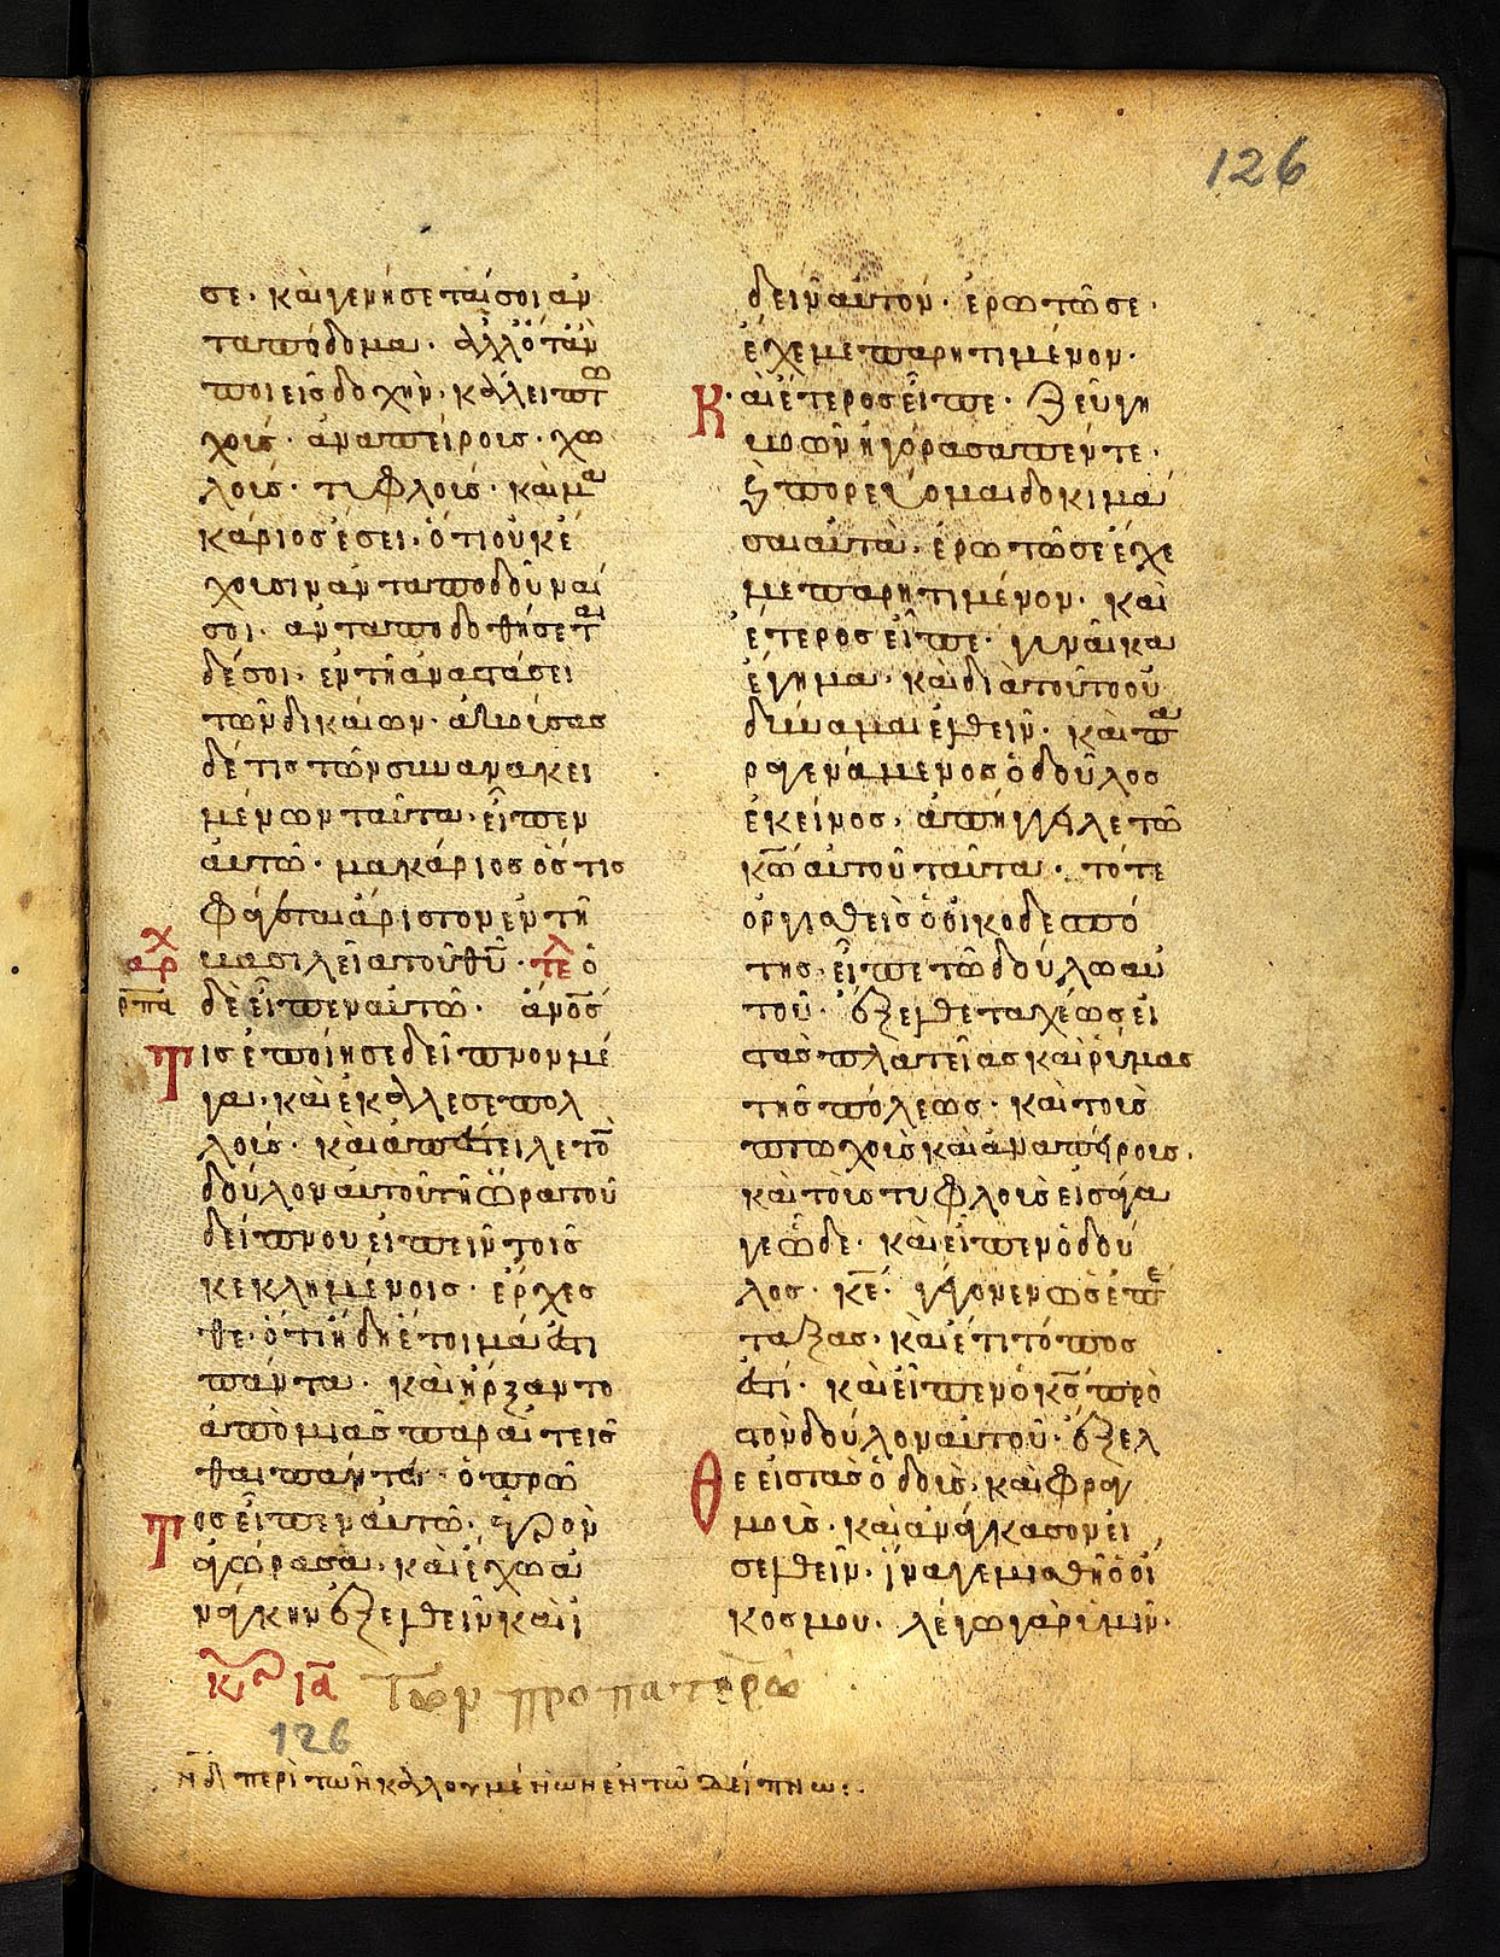 126
σε· καὶ γενήσεται σοι ἀν
ταπόδομα· ἀλλ ὅταν
ποιεῖς δοχὴν· κάλει πτω
χοὺς· ἀναπείρους· χω
λούς· τιφλούς· καὶ μα
κάριος ἔσει· ὅτι οὐκ ἔ
χουσιν ἀνταποδοῦναί
σοι· ἀνταποδοθήσεται
δέ σοι· ἐν τῆ ἀναστάσει
τῶν δικαίων· ἀκούσας
δέ τις τῶν συνανακει
μένων ταῦτα· εἶπεν
αὐτῶ· μακάριος ὅστις
φάγεται ἄριστον ἐν τῆ
ἀρχ
βασιλεῖα τοῦ θῦ· τελ ὁ
ρπα
δὲ εἶπεν αὐτῶ· ἄνος
Τις ἐποίησε δεῖπνον μέ
γα· καὶ ἐκάλεσε πολ
λούς· καὶ ἀπέστειλε τὸ
δοῦλον αὐτοῦ τῆ ὥρα τοῦ
δείπνου εἰπεῖν τοῖς
κεκλημένοις· ἔρχεσ
θε· ὅτι ἤδη ἕτοιμά ἐστι
πάντα· καὶ ἤρξαντο
ἀπὸ μιᾶς παραιτεῖσ
θαι πάντες· ὁ πρῶ
Τος εἶπεν αὐτῶ· ἀγρὸν
ἀγώρασα· καὶ ἔχω ἀ
νάγκην ἐξελθεῖν καὶ ἰ
δεῖν αὐτόν· ἐρωτῶ σε·
ἔχε με παρητιμένον·
Καὶ ἕτερος εἶπε· ζεύγη
βοῶν ἠγόρασα πέντε·
ϗ πορεύομαι δοκιμά
σαι αὐτά· ἐρωτῶ σε ἔχε
με παρητιμένον· καὶ
ἕτερος εἶπε· γυναῖκα
ἔγημα· καὶ διὰ τοῦτο οὐ
δύναμαι ἐλθεῖν· καὶ πα
ραγενάμενος ὁ δοῦλος
ἐκεῖνος· ἀπήγγειλε τῶ
κω αὐτοῦ ταῦτα· τότε
ὀργισθεὶς ὁ οἰκοδεσπό
της· εἶπε τῶ δούλω αὐ
τοῦ· ἔξελθε ταχέως εἰ
στὰς πλατεῖας καὶ ρύμας
τῆς πόλεως· καὶ τοὺς
πτωχοὺς καὶ ἀναπείρους·
καὶ τοὺς τυφλοὺς εἰσάγα
γε ὧδε· καὶ εἶπεν ὁ δοῦ
λος· κε· γέγονεν ὡς ἐπέ
ταξας· καὶ ἔτι τόπος
ἐστί· καὶ εἶπεν ὁ κς πρὸ
στὸν δοῦλον αὐτοῦ· ἔξελ
Θε εἰς τὰς ὁδοὺς· καὶ φραγ
μοὺς· καὶ ἀνάγκασον εἰ
σελθεῖν· ἵνα γεμισθῆ ὁ οἶ
κος μου· λέγω γὰρ ὑμῖν·
κυ ια Τῶν προπατόρω
126
νδ περὶ τῶν καλλουμένων ἐν τῶ δείπνω:·